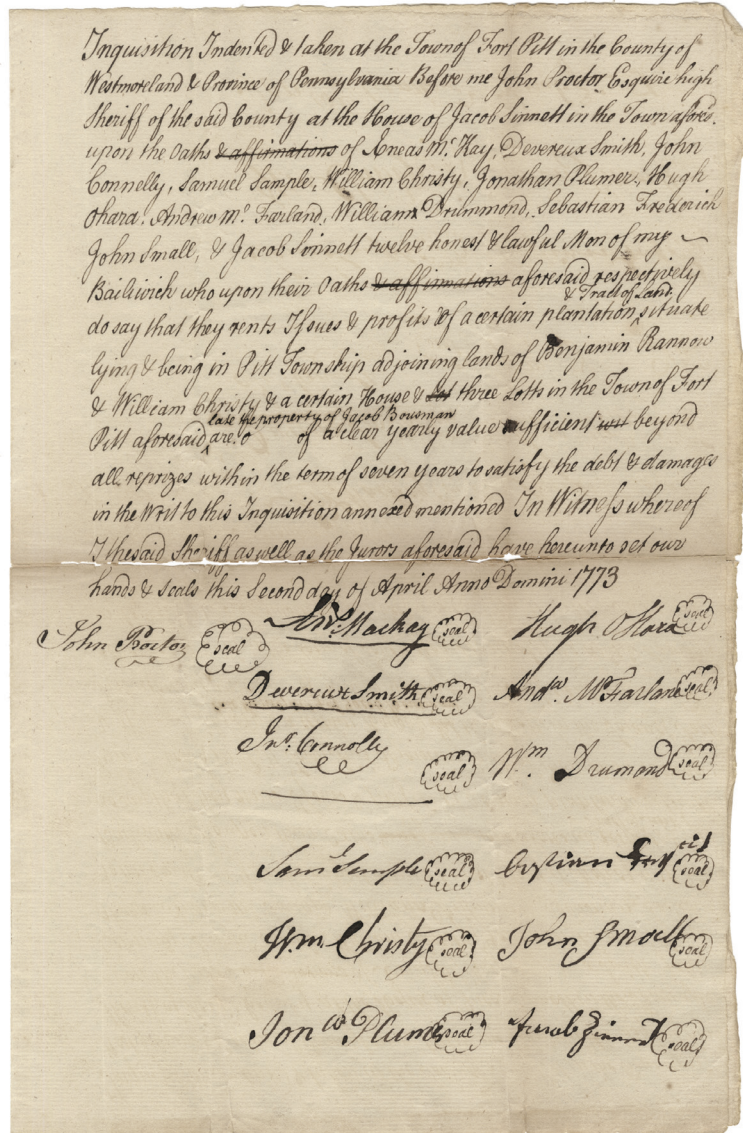 Inquisition Indented & taken at the Town of Fort Pitt in the County of
Westmoreland & Province of Pennsylvania Before me John Proctor Esquire high
Sheriff of the said County at the House of Jacob Sinnett in the Town afores'd.
upon the Oaths & affirmations of Æneas Mc. Kay, Devereux Smith, John
Connelly, Samuel Sample, William Christy, Jonathan Plumer, Hugh
Ohara. Andrew Mc. Farland, William Drummond, Sebastian Frederich
John Small, & Jacob Sinnett twelve honest & lawful Men of my
Bailiwich who upon their Oaths & affirmations aforesaid respectively
& Tract of Land,
do say that they rents Issues & profits of a certain plantation situate
lying & being in Pitt Township adjoining lands of Benjamin Rannow
& William Christy & a certain House & Lot three Lotts in the Town of Fort
late the property of Jacob Bousman
Pitt aforesaid are of a clear yearly value sufficient beyond
all reprizes within the term of seven years to satisfy the debt & damages
in the Writ to this Inquisition annexed mentioned In Witness whereof
I the said Sheriff as well as the Jurors aforesaid have hereunto set our
hands & seals this Second day of April Anno Domini 1773
John Proctor seal
Mackay seal Hugh OHara seal
Devereux Smith seal Andw. McFarland seal
Jno. Connolly seal Wm Drumond seal
Saml Semple seal seal
Wm. Christy seal John Small seal
Jon Plumer seal Jacob Sinnett seal